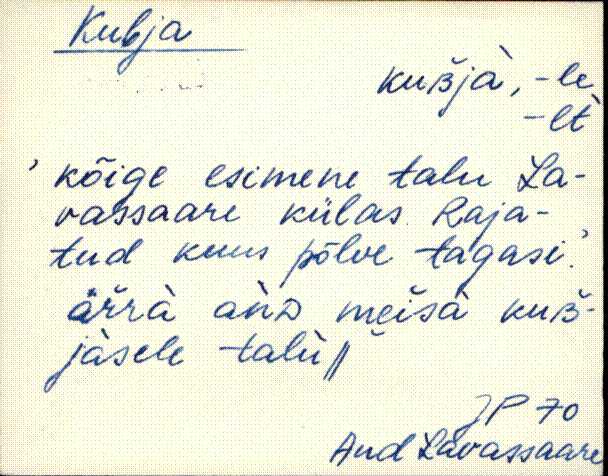 Kubja
kuʙ̆jà, -le
-lt̀
'kõige esimene talu La-
vassaare külas. Raja-
tud kuus põlve tagasi.'
är̆rà an̆ᴅ meisà kuʙ̆-
jàsele talù //
JP 70
Aud Lavassaare